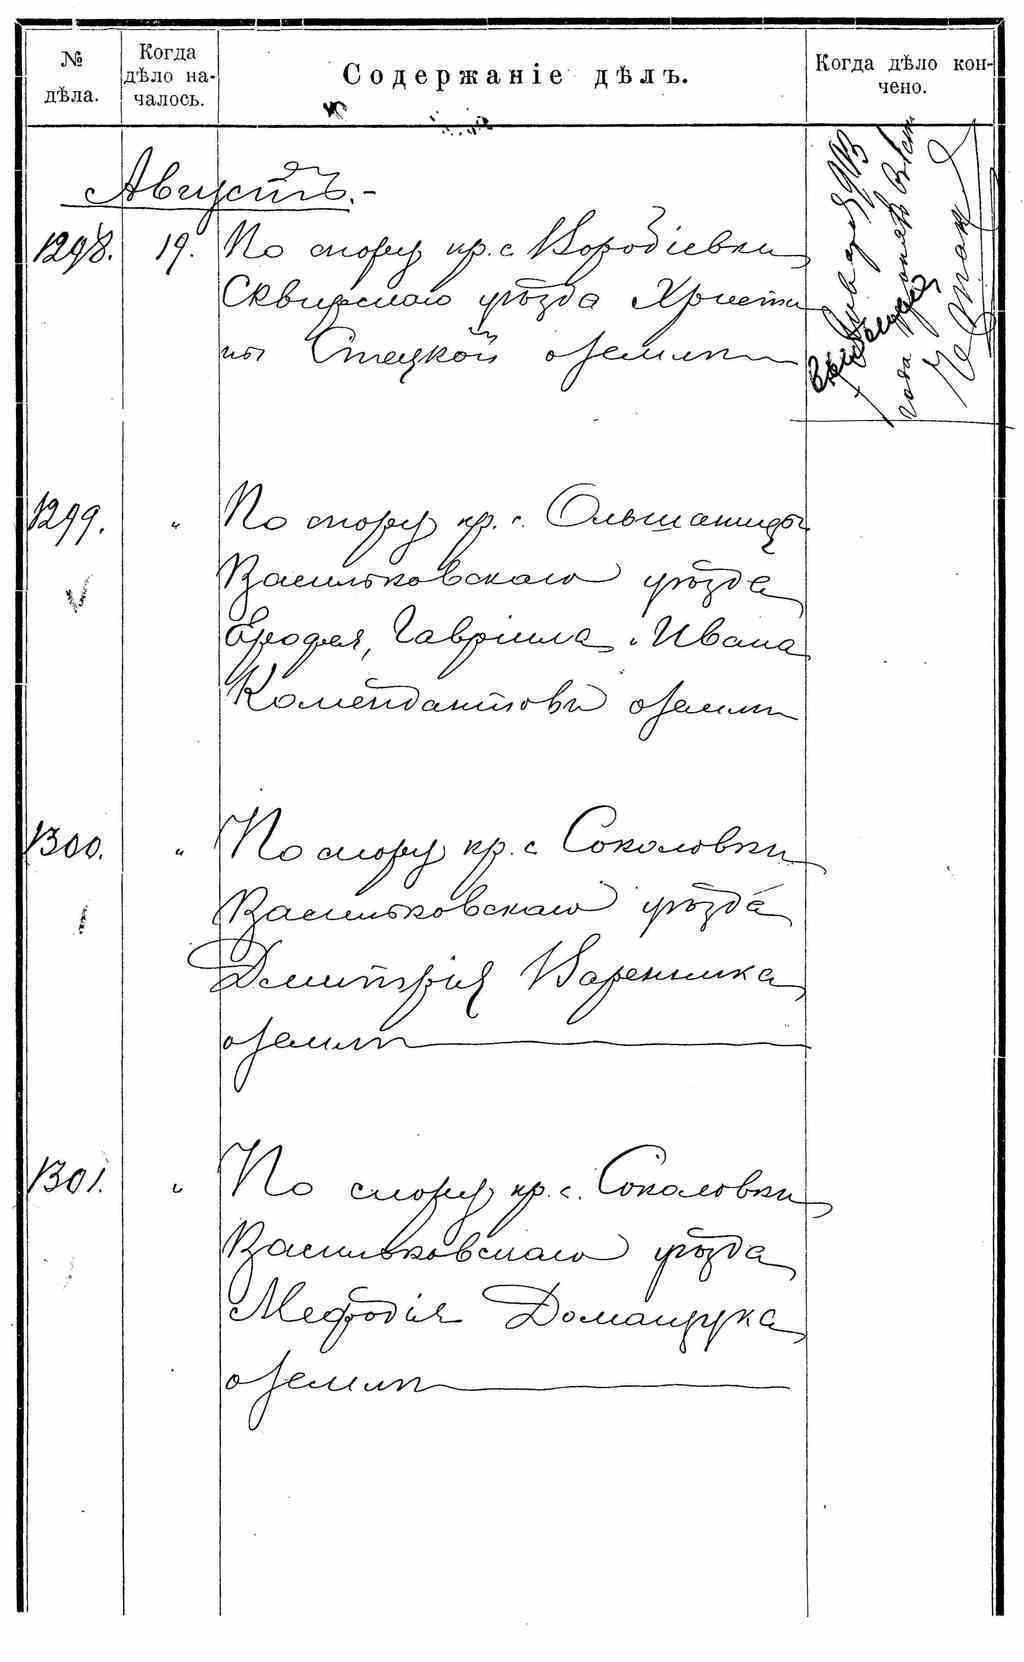 №
дѣла.
Когда
дѣло на-
чалось.
Содержаніе дѣлъ.
Когда дѣло кон-
чено.
Августъ.-
1298. 19. По спору кр. с Воробіевки
Сквирскаго уѣзда Христи
ны Стецкой о землѣ
1299. " По спору кр. с. Ольшаницы
Васильковскаго уѣзда
Ерофея, Гавріила и Ивана
Комендантовъ о землѣ
1300. " По спору кр. с Соколовки
Васильковскаго уѣзда
Дмитрія Вареника
о землѣ
1301. " По спору кр. с. Соколовки
Васильковскаго уѣзда
Мефодія Доманцука
о землѣ
Января
года